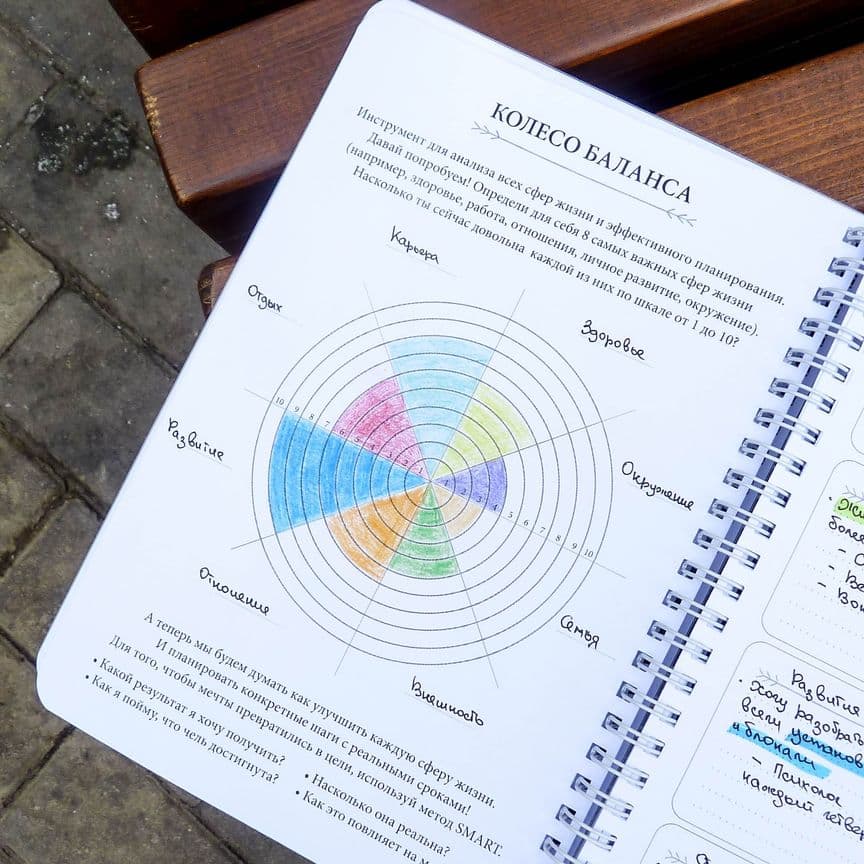 КОЛЕСО БАЛАНСА
Инструмент для анализа всех сфер жизни и эффективного планирования.
Давай попробуем! Определи для себя 8 самых важных сфер жизни
(например, здоровье, работа, отношения, личное развитие, окружение).
Насколько ты сейчас довольна каждой из них по шкале от 1 до 10?
Карьера
Отдых
Здоровье
10 9 8 7 6 5 4 3 2 1
Развитие
Окружение
1 2 3 4 5 6 7 8 9 10
Отношение
Семья
Внешность
А теперь мы будем думать как улучшить каждую сферу жизни.
И планировать конкретные шаги с реальными сроками!
Для того, чтобы мечты превратились в цели, используй метод SMART.
• Какой результат я хочу получить?
• Как я пойму, что цель достигнута?
• Насколько она реальна?
• Как это повлияет на м
более
Развития
• хочу разобрат
всеми установ
и блоками
- Психолог
каждый четвер